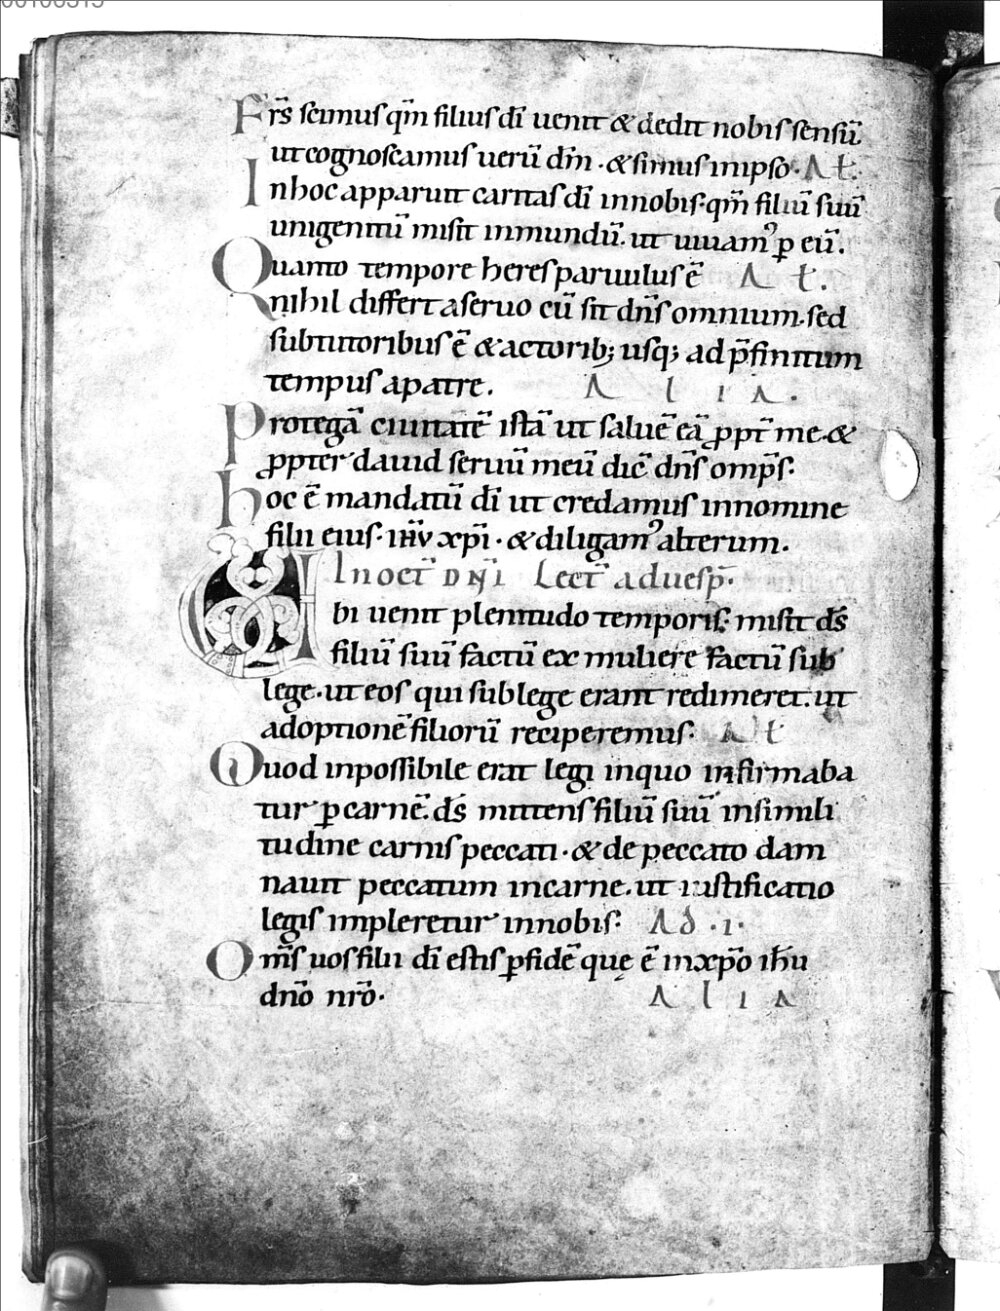 Fr̄s scimus qm̄ filius dī uenit & dedit nobis sensū
ut cognoscamus uerū dm̄ . & simus inipso · A t̄.
In hoc apparuit caritas dī innobis· qm̄ filiū suū
unigenitū misit inmundū. ut uiuam᾽ ꝑ eū.
Quanto tempore heres paruulus ē A t̄.
nihil differt aseruo cū sit dn̄s omnium. sed
subtutoribus ē & actorib; usq; ad p̄finitum
tempus apatre. A l i A .
Protegā ciuitatē istā ut saluē eā ꝓpt̄ me. &
ꝓpter dauid seruū meū dic̄ dn̄s omp̄s.
hoc ē mandatū dī ut credamus innomine
filii eius. ih̄v xp̄i · & diligam᾽ alterum.
In oct̄ Dn̄i Lect̄ aduesp̄.
Ubi uenit plenitudo temporis: misit ds̄
filiū suū factū ex muliere factū sub
lege. ut eos qui sub lege erant redimeret. ut
adoptionē filiorū reciperemus. A t̄
Quod inpossibile erat legi inquo infirmaba
tur ꝑ carnē. ds̄ mittens filiū suū insimili
tudine carnis peccati · & de peccato dam
nauit peccatum incarne. ut iustificatio
legis impleretur innobis: Ad · i ·
Om̄s uos filii dī estis ꝑ fidē quę ē inxp̄o ih̄u
dn̄o nr̄o. A l i A